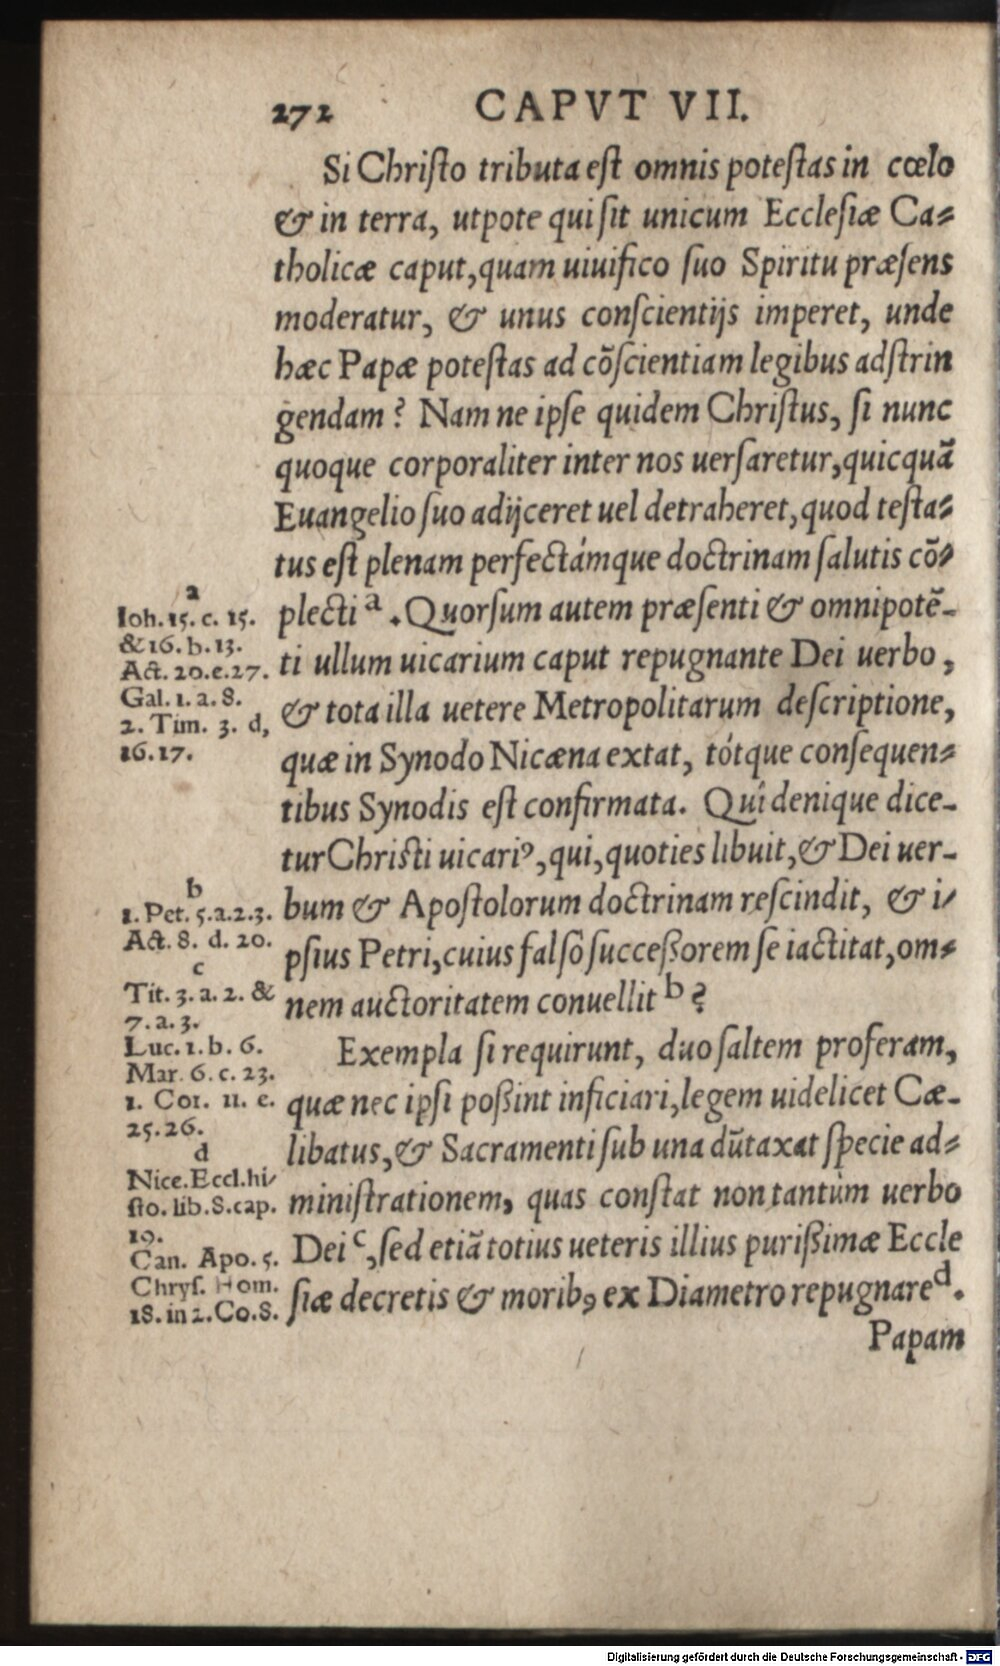 272 CAPVT VII.
Si Chriſto tributa eſt omnis poteſtas in cœlo
& in terra, utpote qui ſit unicum Eccleſiæ Ca⸗
tholicæ caput, quam uiuifico ſuo Spiritu præſens
moderatur, & unus conſcientijs imperet, unde
hæc Papæ poteſtas ad cõſcientiam legibus adſtrin
gendam? Nam ne ipſe quidem Chriſtus, ſi nunc
quoque corporaliter inter nos uerſaretur, quicquã
Euangelio ſuo adijceret uel detraheret, quod teſta⸗
tus eſt plenam perfectámque doctrinam ſalutis cõ⸗
plecti a. Quorſum autem præſenti & omnipotẽ-
ti ullum uicarium caput repugnante Dei uerbo,
& tota illa uetere Metropolitarum deſcriptione,
quæ in Synodo Nicæna extat, tótque conſequen⸗
tibus Synodis eſt confirmata. Quî denique dice-
tur Chriſti uicariꝰ, qui, quoties libuit, & Dei uer-
bum & Apoſtolorum doctrinam reſcindit, & i⸗
pſius Petri, cuius falsò ſucceßorem ſe iactitat, om⸗
nem auctoritatem conuellit b?
Exempla ſi requirunt, duo ſaltem proferam,
quæ nec ipſi poßint inficiari, legem uidelicet Cæ-
libatus, & Sacramenti ſub una dũtaxat ſpecie ad⸗
miniſtrationem, quas conſtat non tantùm uerbo
Dei c, ſed etiã totius ueteris illius purißimæ Eccle
ſiæ decretis & moribꝰ ex Diametro repugnare d.
Papam
a
Ioh. 15. c. 15.
& 16. b. 13.
Act. 20. e. 27.
Gal. 1. a. 8.
2. Tim. 3. d,
16. 17.
b
1. Pet. 5. a. 2. 3.
Act. 8. d. 20.
c
Tit. 3. a. 2. &
7. a. 3.
Luc. 1. b. 6.
Mar. 6. c. 23.
1. Cor. 11. e.
25. 26.
d
Nice. Eccl. hi⸗
ſto. lib. 8. cap.
19.
Can. Apo. 5.
Chryſ. Hom.
18. in 2. Co. 8.
Digitalisierung gefördert durch die Deutsche Forschungsgemeinschaft - DFG